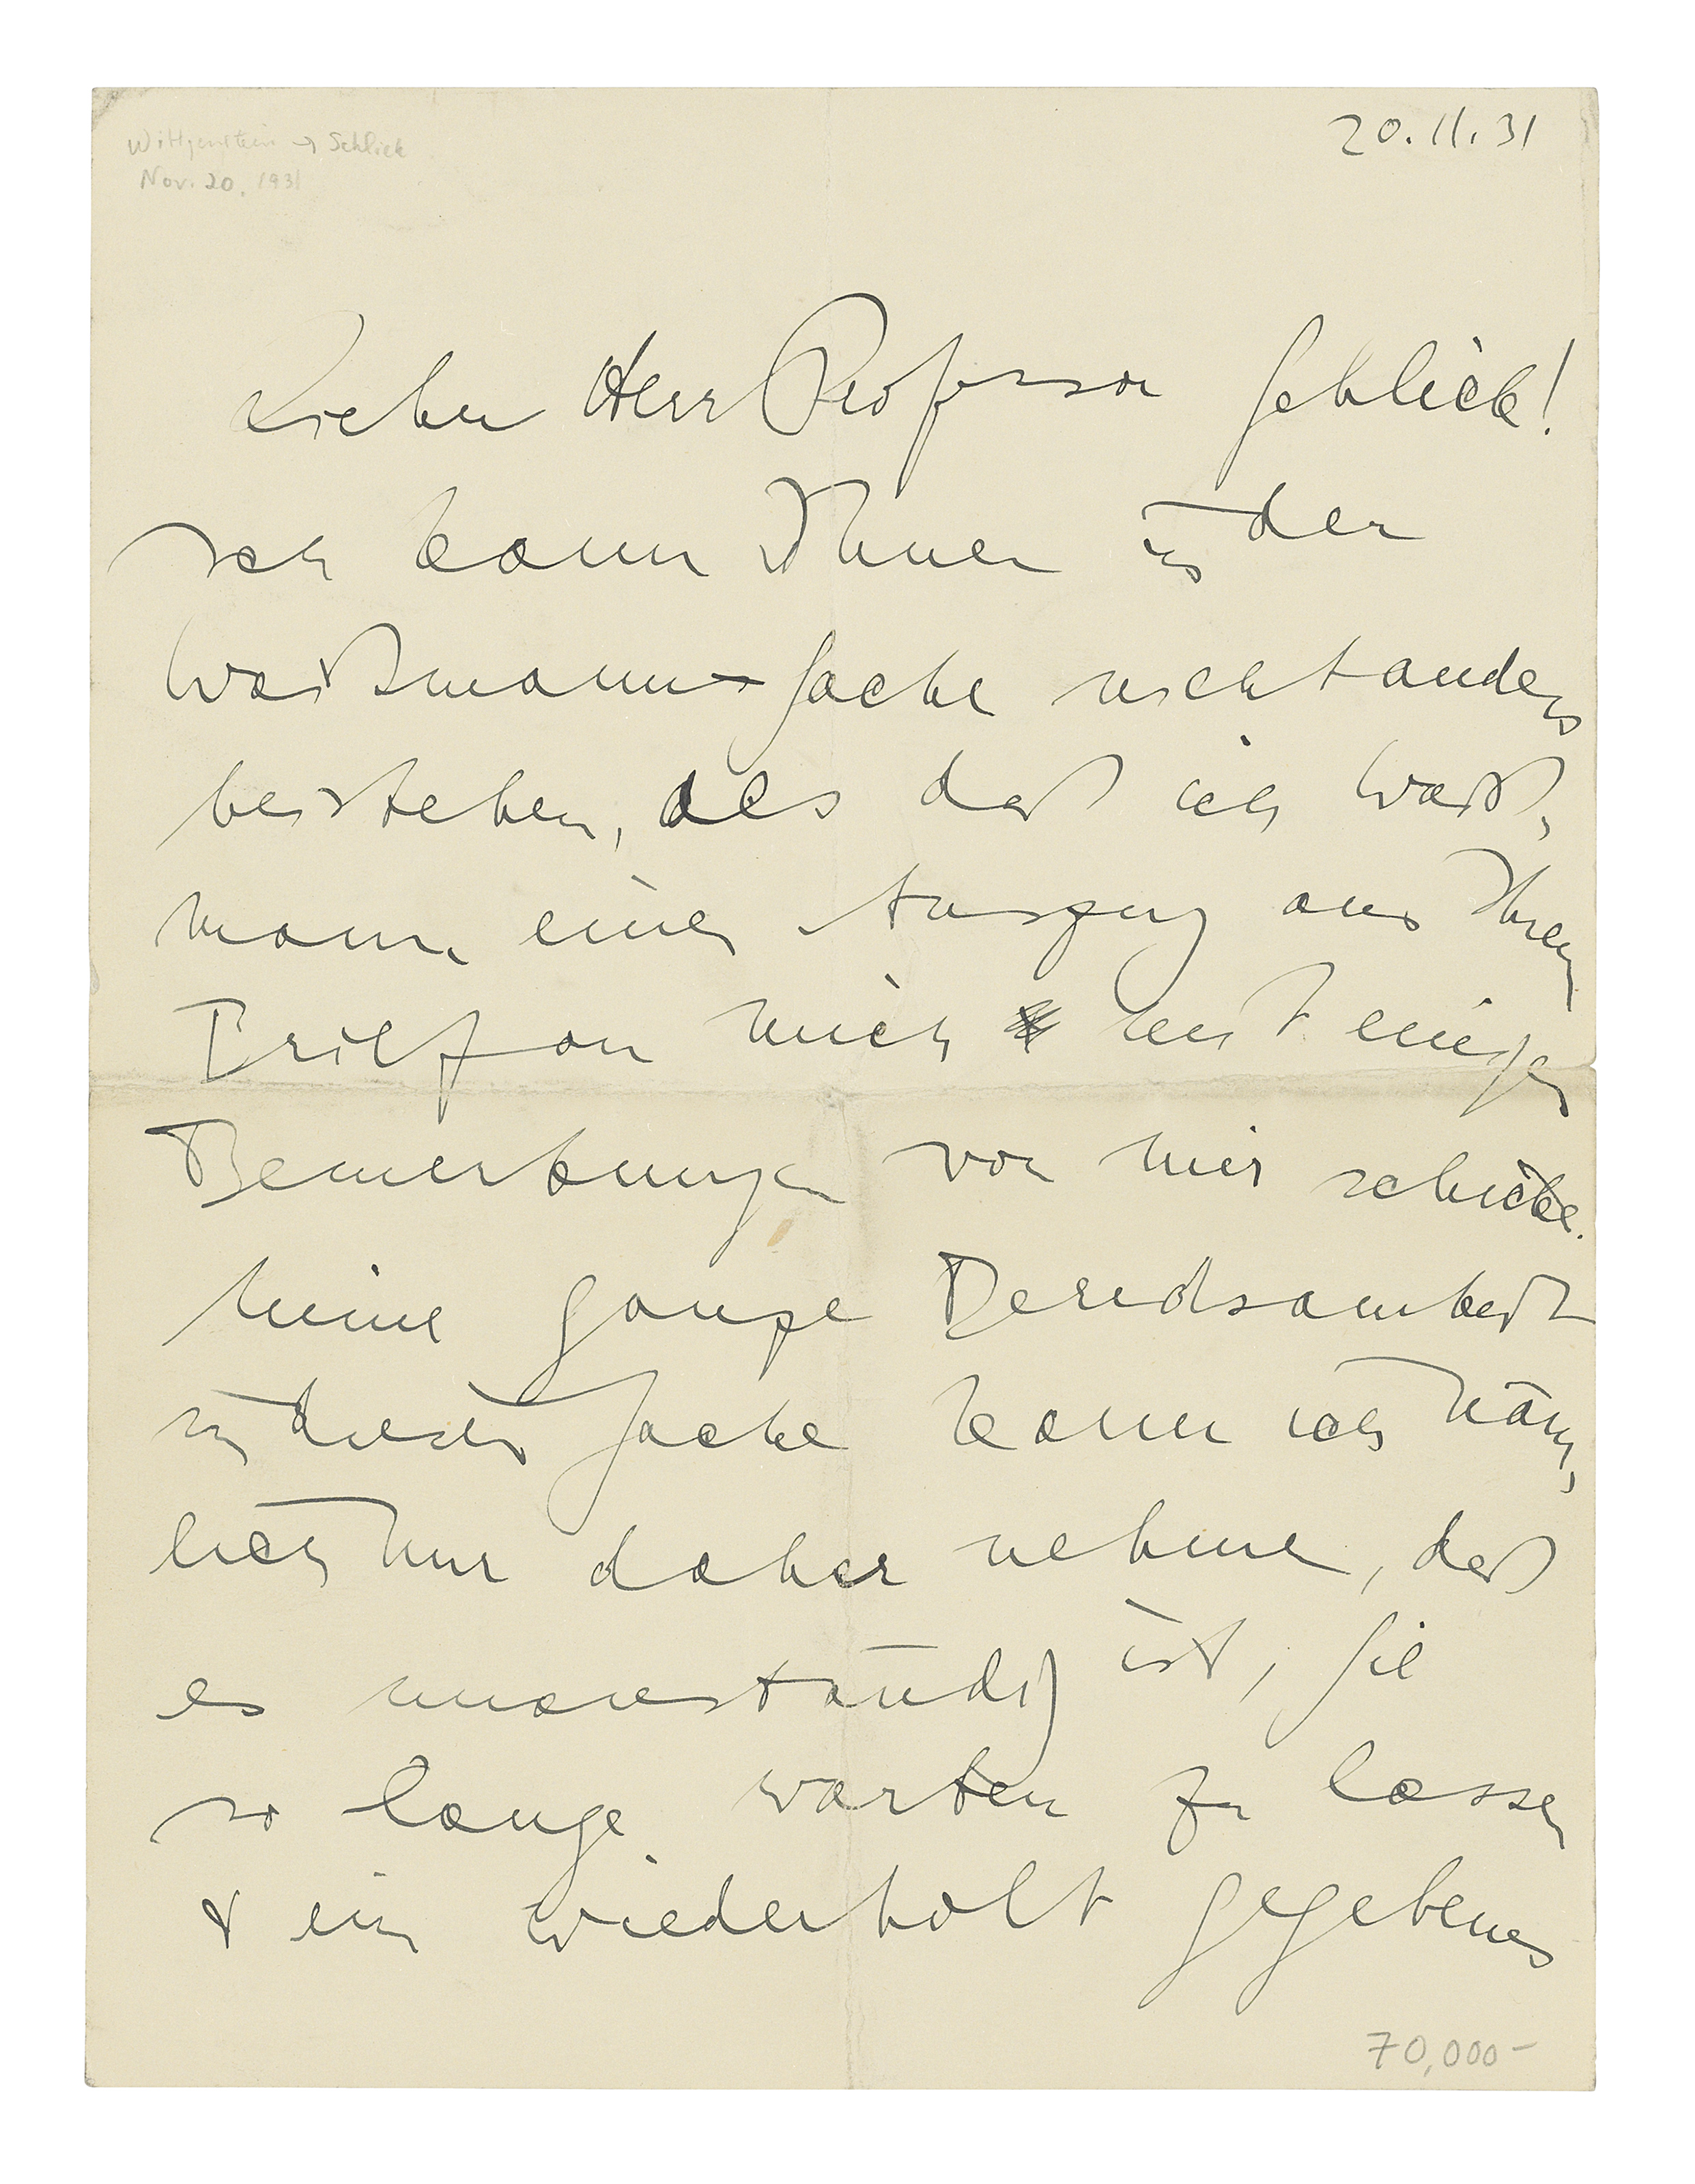 Wittgenstein → Schlick
Nov. 20. 1931
20.11.31
Lieber Herr Professor Schlick!
Ich kann Ihnen in der
Waißmann-Sache nicht anders
beistehen, als daß ich Waiß-
mann einen Auszug aus Ihrem
Brief an mich mit einigen
Bemerkungen von mir schicke.
Meine ganze Beredsamkeit
in dieser Sache kann ich näm-
lich nur daher nehmen, daß
es unanständig ist, Sie
so lange warten zu lassen
& ein wiederholt gegebenes
70,000-